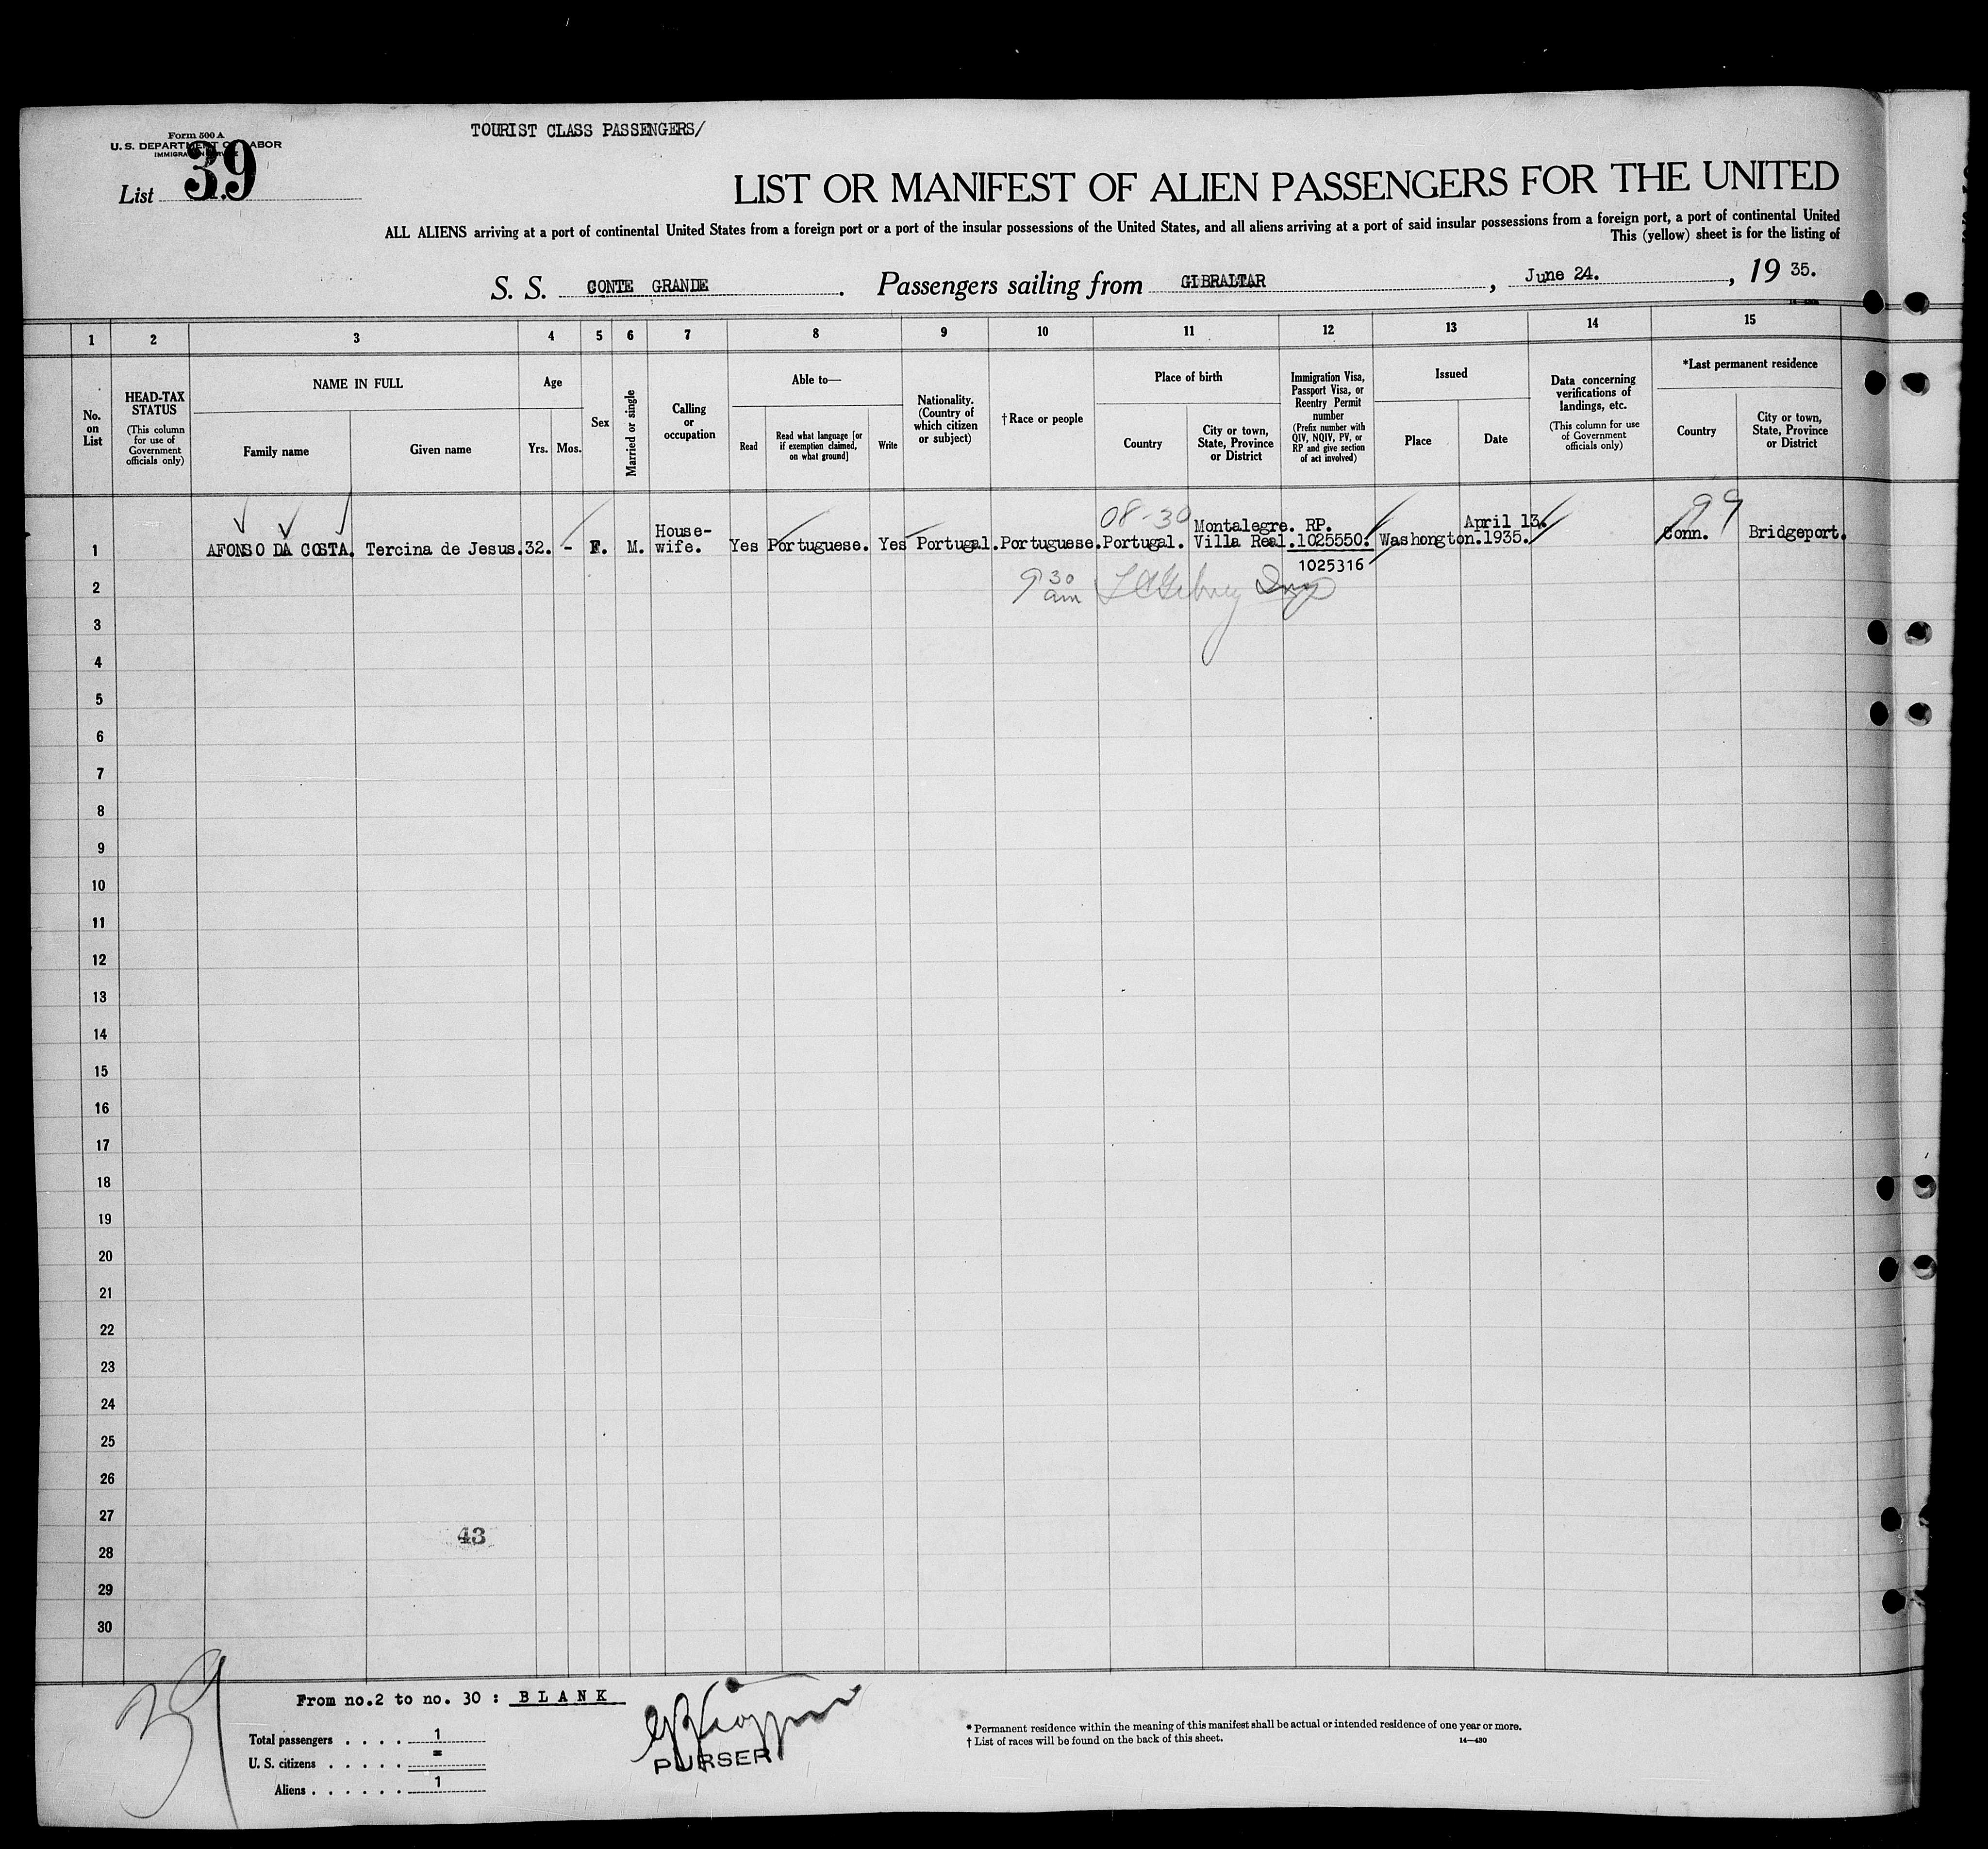 TOURIST CLASS PASSENGERS/
Form 500 A
U. S. DEPARTMENT OF LABOR
List 39
LIST OR MANIFEST OF ALIEN PASSENGERS FOR THE UNITED
ALL ALIENS arriving at a port of continental United States from a foreign port or a port of the insular possessions of the United States, and all aliens arriving at a port of said insular possessions from a foreign port, a port of continental United
This (yellow) sheet is for the listing of
S. S. CONTE GRANDE. Passengers sailing from GIBRALTAR, June 24., 19 35.
1 2 3 4 5 6 7 8 9 10 11 12 13 14 15
No. on List
HEAD-TAX STATUS
(This column for use of Government officials only)
NAME IN FULL
Family name
Given name
Age
Yrs.
Mos.
Sex
Married or single
Calling or occupation
Able to—
Read
Read what language [or if exemption claimed, on what ground]
Write
Nationality. (Country of which citizen or subject)
†Race or people
Place of birth
Country
City or town, State, Province or District
Immigration Visa, Passport Visa, or Reentry Permit number
(Prefix number with QIV, NQIV, PV, or RP and give section of act involved)
Issued
Place
Date
Data concerning verifications of landings, etc.
(This column for use of Government officials only)
*Last permanent residence
Country
City or town, State, Province or District
08-30
99
House- Montalegre. RP. April 13.
1 AFONSO DA COSTA. Tercina de Jesus. 32. - F. M. wife. Yes Portuguese. Yes Portugal. Portuguese. Portugal. Villa Real. 1025550. Washongton. 1935. Conn. Bridgeport.
1025316
2
9 30 am
3
4
5
6
7
8
9
10
11
12
13
14
15
16
17
18
19
20
21
22
23
24
25
26
27
43
28
29
30
39
From no.2 to no. 30 : B L A N K
Total passengers . . . . 1
U. S. citizens . . . . . =
Aliens . . . . . . 1
PURSER
* Permanent residence within the meaning of this manifest shall be actual or intended residence of one year or more.
† List of races will be found on the back of this sheet.
14—430